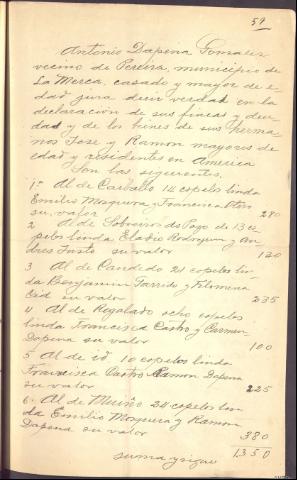 59
Antonio Dapena Gomales
vecino de Pereira, municipio de
La Merca, casado y mayor de e-
dad jura decir verdad en la
declaración de sus fincas y deu-
das y de los bines de sus herma
nos Jose y Ramon mayores de
edad y residentes en America
Son las siguientes.
1ª Al de Carballo 14 copelos linda
Emilio Mosquera y Francisca
su valor 270
2 Al de Sobreiros do Pazo de 13 co-
pelos linda Eladio Rodriguez y An
dres Justo su valor 120
3 Al de Candedo 21 copelos lin-
da Benjamin Garrido y Filomena
Cid su valor 235
4 Al de Regalado ocho copelos
linda Francisca Castro y Carmen
Dapena su valor 100
5 Al de id 10 copelos linda
Francisca Castro Ramon Dapena
su valor 225
6 Al de Muiño 24 copelos lin-
da Emilio Mosquera y Ramon
Dapena su valor 380
suma y sigue 1350